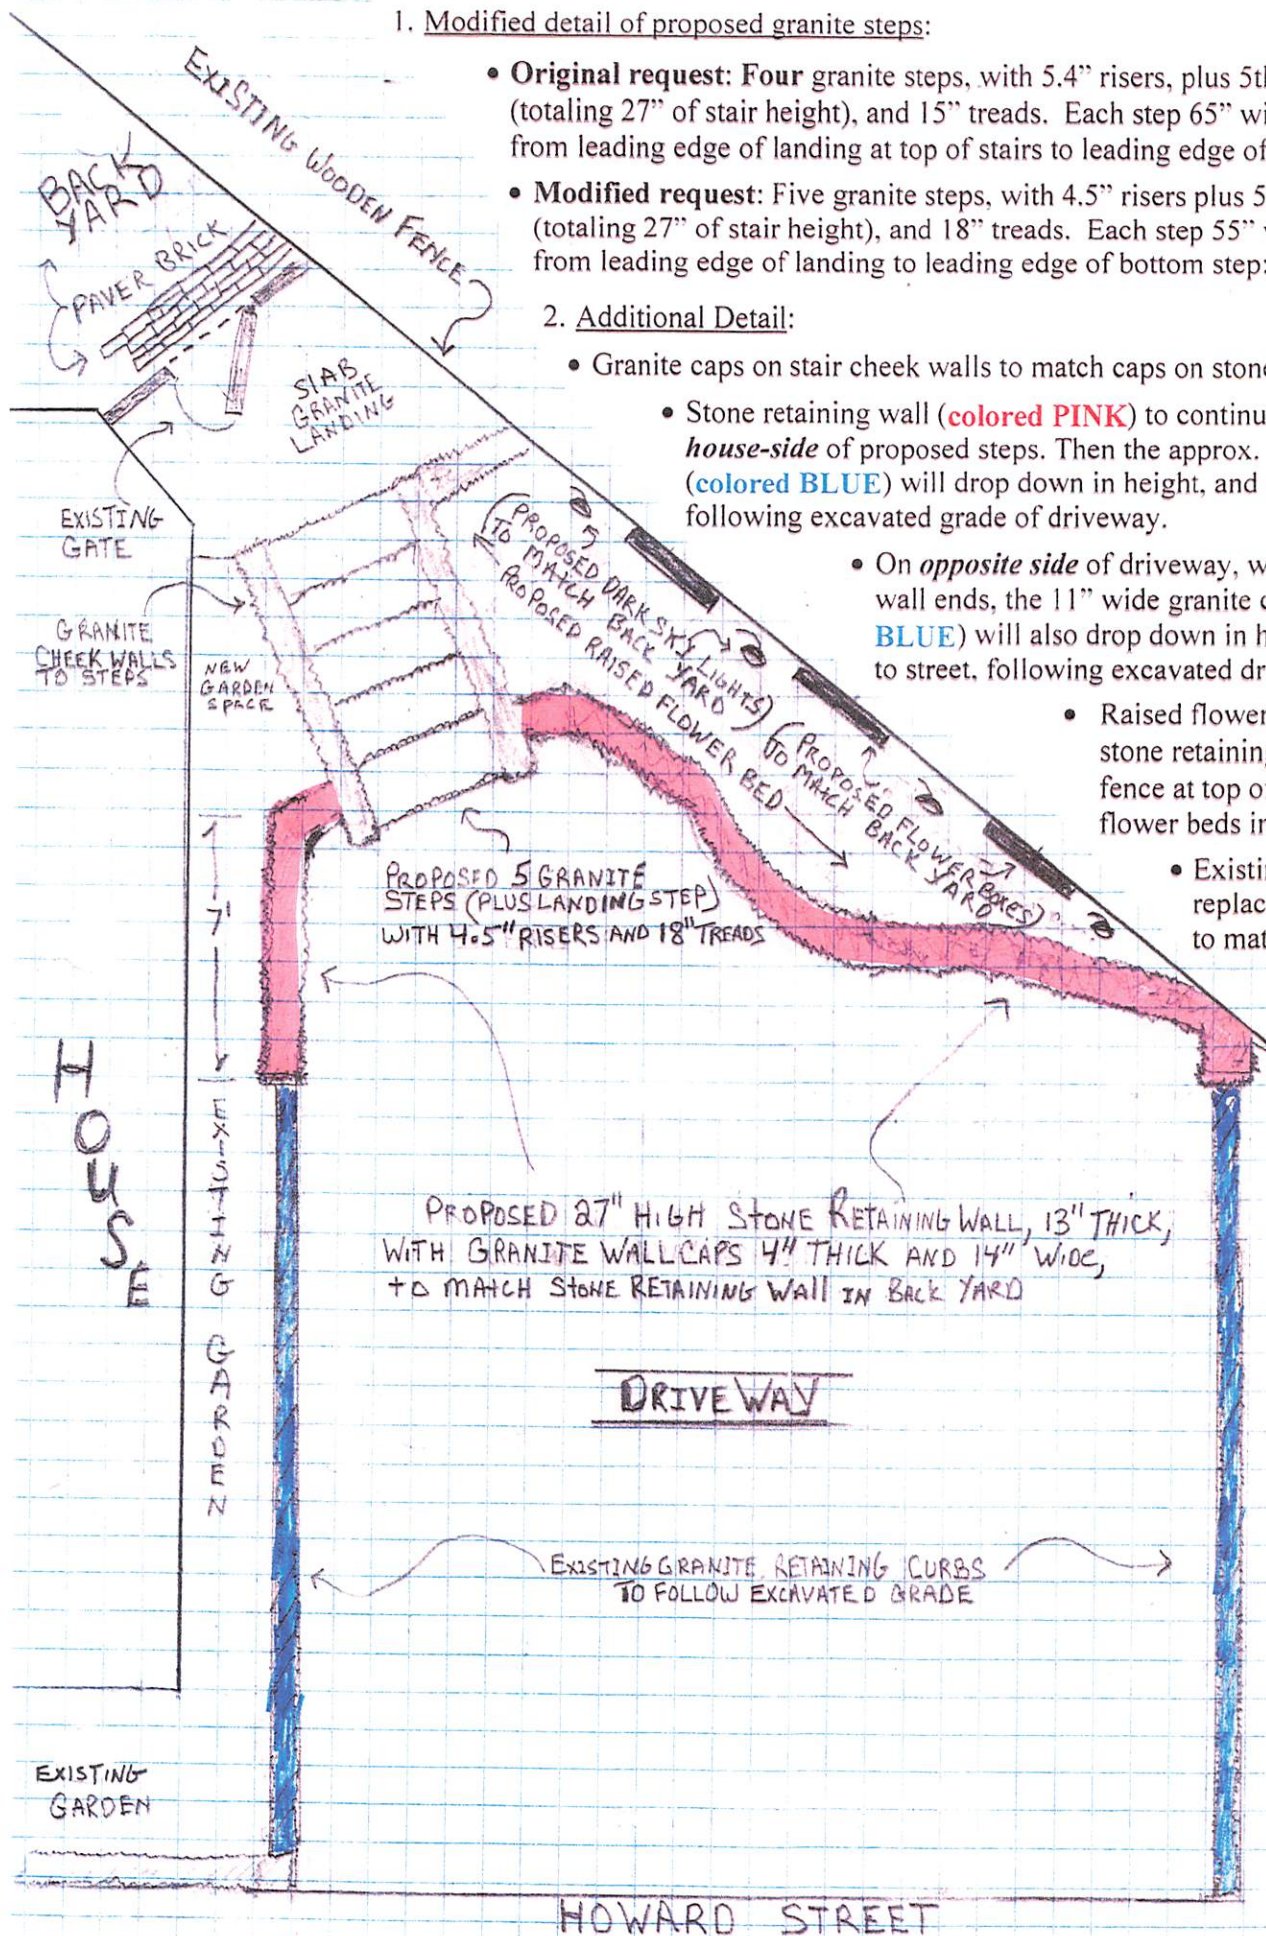 1. Modified detail of proposed granite steps:
• Original request: Four granite steps, with 5.4” risers, plus 5th
(totaling 27” of stair height), and 15” treads. Each step 65” wi
from leading edge of landing at top of stairs to leading edge of
• Modified request: Five granite steps, with 4.5” risers plus 5
(totaling 27” of stair height), and 18” treads. Each step 55”
from leading edge of landing to leading edge of bottom step:
2. Additional Detail:
• Granite caps on stair cheek walls to match caps on stone
• Stone retaining wall (colored PINK) to continu
house-side of proposed steps. Then the approx.
(colored BLUE) will drop down in height, and
following excavated grade of driveway.
• On opposite side of driveway, w
wall ends, the 11” wide granite c
BLUE) will also drop down in h
to street, following excavated dr
• Raised flower
stone retaining
fence at top o
flower beds in
• Existin
replac
to mat
EXISTING WOODEN FENCE
BACK
YARD
PAVER BRICK
SLAB
GRANITE
LANDING
EXISTING
GATE
GRANITE
CHEEK WALLS
TO STEPS
NEW
GARDEN
SPACE
(PROPOSED DARK SKY LIGHTS)
TO MATCH BACK YARD
PROPOSED RAISED FLOWER BED
(PROPOSED FLOWER BOXES)
TO MATCH BACK YARD
PROPOSED 5 GRANITE
STEPS (PLUS LANDING STEP)
WITH 4.5" RISERS AND 18" TREADS
7'
HOUSE
EXISTING GARDEN
PROPOSED 27" HIGH STONE RETAINING WALL, 13" THICK,
WITH GRANITE WALL CAPS 4" THICK AND 14" WIDE,
TO MATCH STONE RETAINING WALL IN BACK YARD
DRIVEWAY
EXISTING GRANITE RETAINING CURBS
TO FOLLOW EXCAVATED GRADE
EXISTING
GARDEN
HOWARD STREET